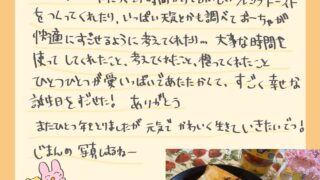 をつくってくれたり、いっぱい天気とかも調べておーちゃが
快適にすごせるように考えてくれたり…大事な時間を
使ってしてくれたこと、考えてくれたこと、
ひとつひとつが愛いっぱいであたたかくて、すごく幸せな
誕生日をすごせた! ありがとう
またひとつ年をとりましたが 元気で かわいく生きていきたいでっ!
じまんの 写真